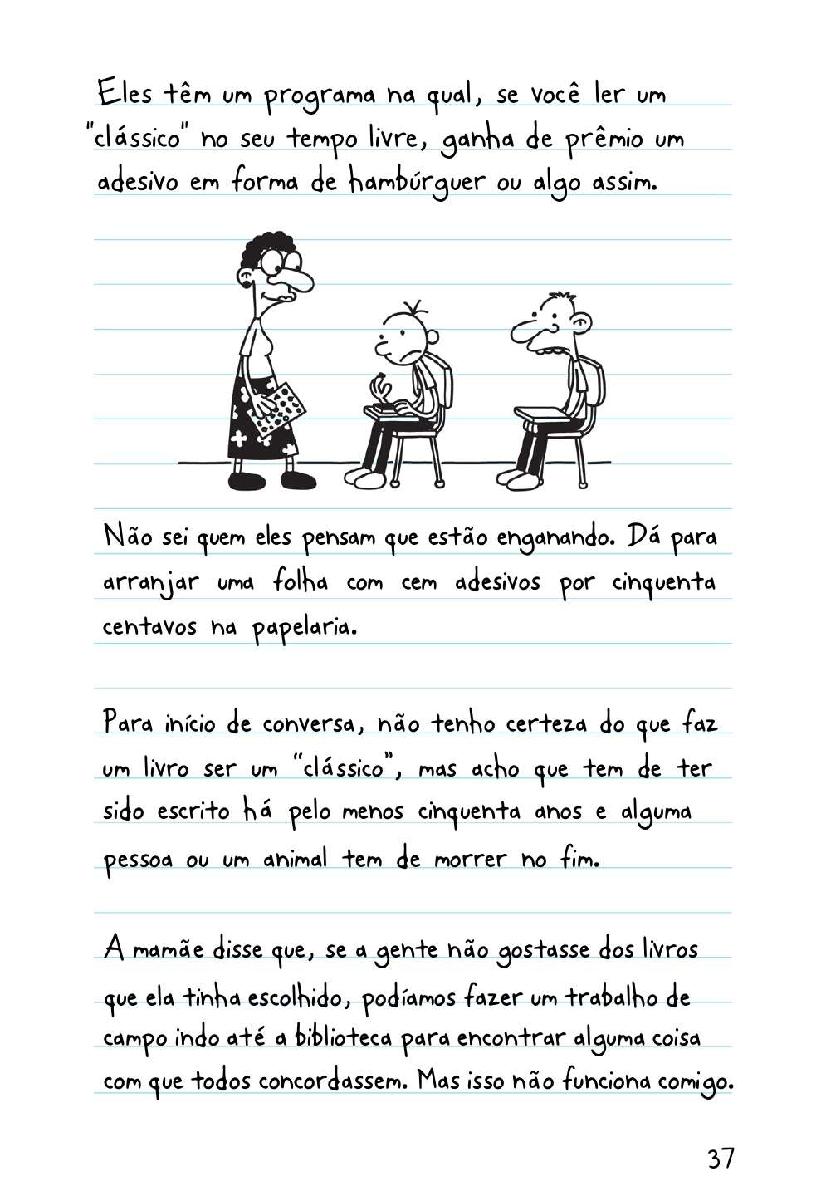 Eles têm um programa na qual, se você ler um
"clássico" no seu tempo livre, ganha de prêmio um
adesivo em forma de hambúrguer ou algo assim.
Não sei quem eles pensam que estão enganando. Dá para
arranjar uma folha com cem adesivos por cinquenta
centavos na papelaria.
Para início de conversa, não tenho certeza do que faz
um livro ser um "clássico", mas acho que tem de ter
sido escrito há pelo menos cinquenta anos e alguma
pessoa ou um animal tem de morrer no fim.
A mamãe disse que, se a gente não gostasse dos livros
que ela tinha escolhido, podíamos fazer um trabalho de
campo indo até a biblioteca para encontrar alguma coisa
com que todos concordassem. Mas isso não funciona comigo.
37